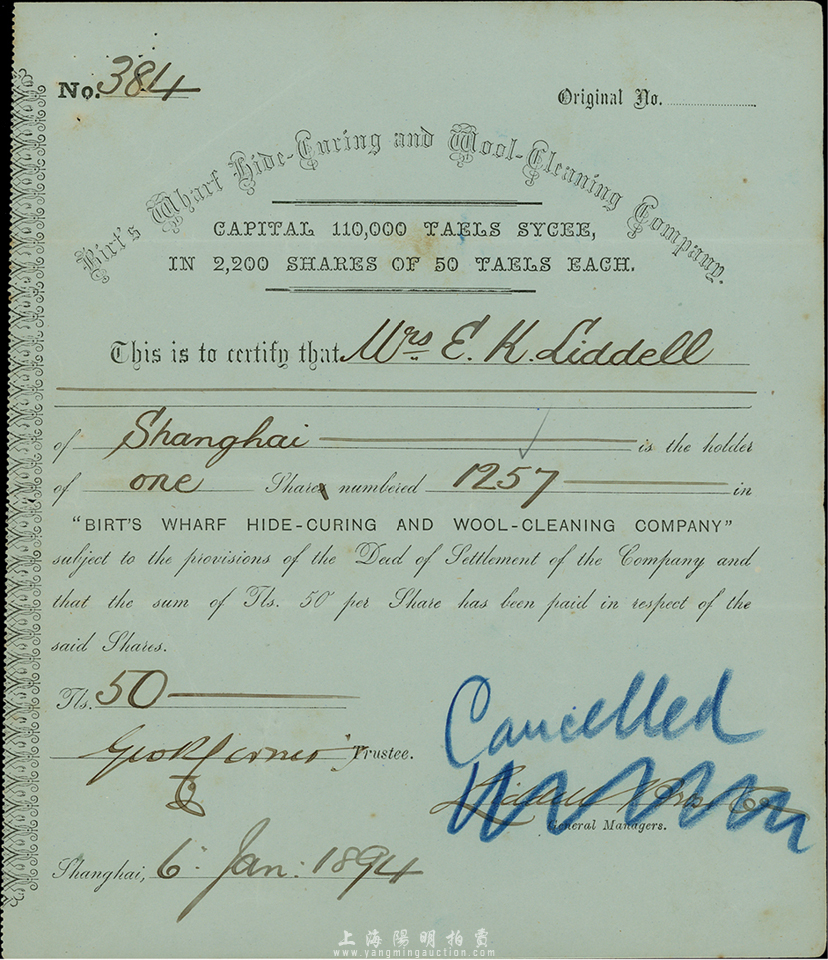 No. 384
Original No.
Birt's Wharf Hide-Curing and Wool-Cleaning Company.
CAPITAL 110,000 TAELS SYCEE,
IN 2,200 SHARES OF 50 TAELS EACH.
This is to certify that Mrs E. K. Liddell
of Shanghai is the holder
of one Shares numbered 1257 in
"BIRT'S WHARF HIDE-CURING AND WOOL-CLEANING COMPANY"
subject to the provisions of the Deed of Settlement of the Company and
that the sum of Tls. 50 per Share has been paid in respect of the
said Shares.
Tls. 50
Cancelled
Trustee.
Liddell Bros & Co
General Managers.
Shanghai, 6 Jan: 1894
上海陽明拍賣
www.yangmingauction.com